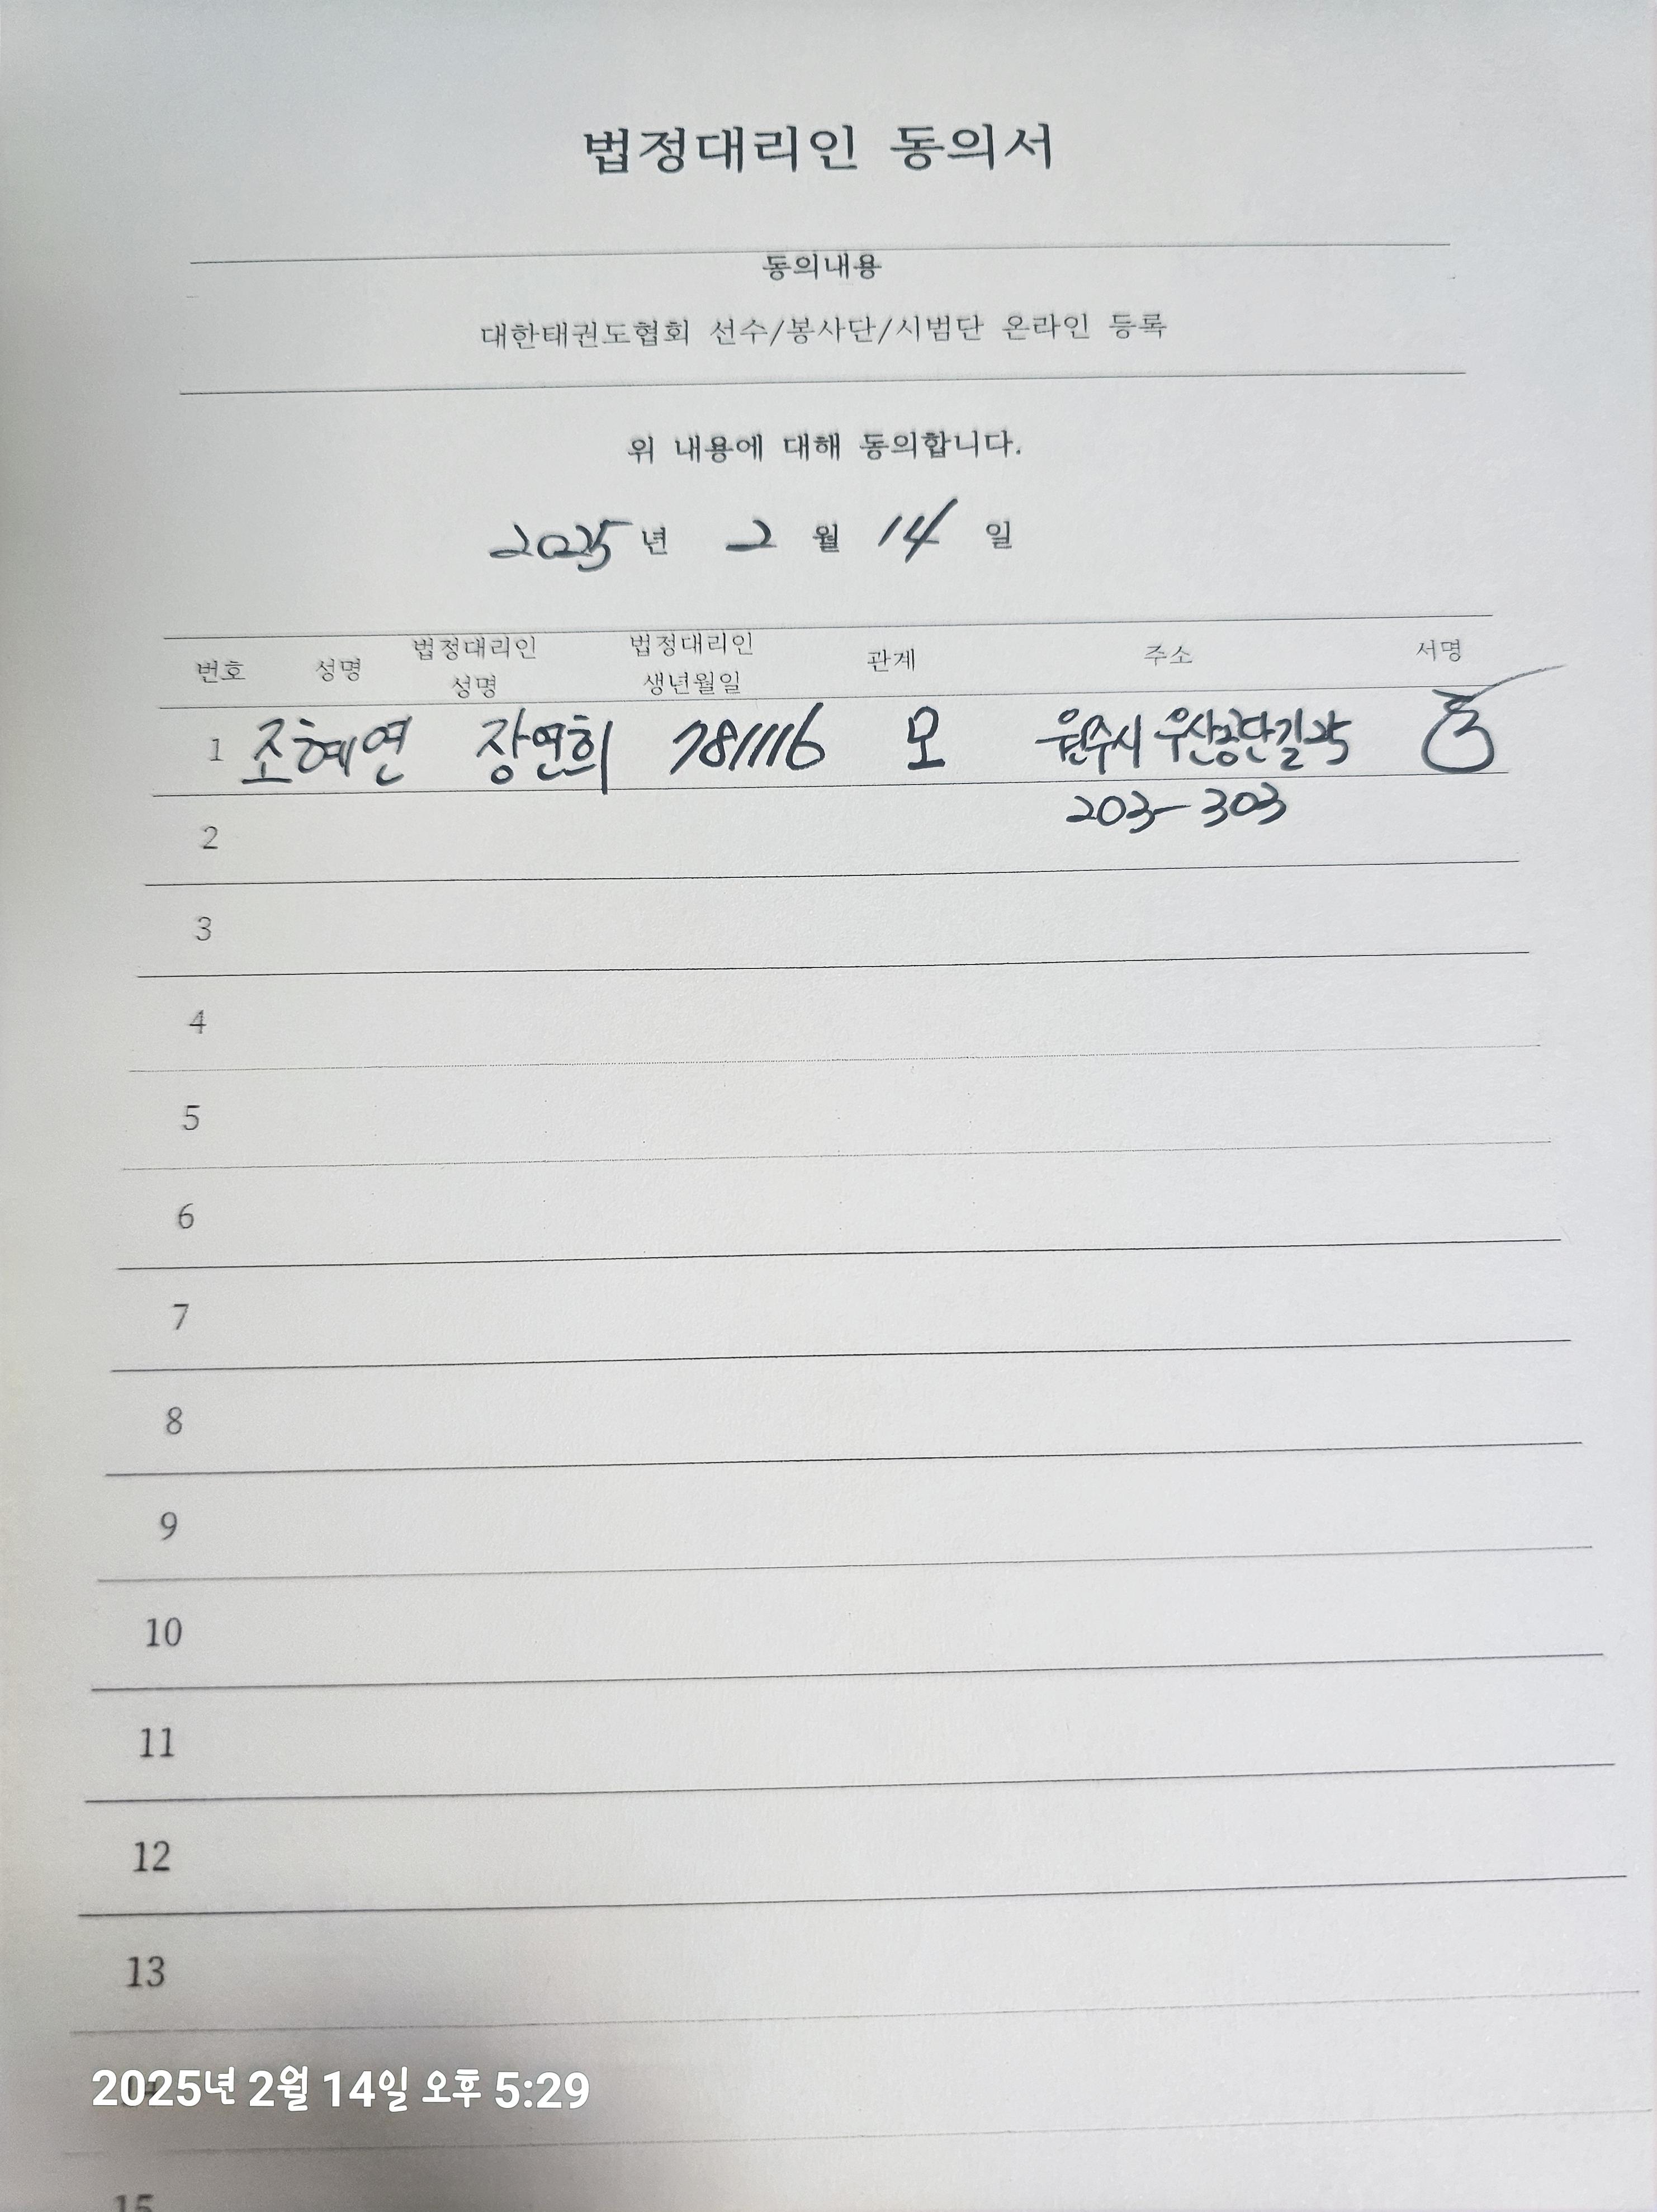 법정대리인 동의서
동의내용
대한태권도협회 선수/봉사단/시범단 온라인 등록
위 내용에 대해 동의합니다.
2025 년 2 월 14 일
번호 성명 법정대리인 성명 법정대리인 생년월일 관계 주소 서명
1 조혜연 장연희 781116 모 원주시 우산공단길 25
203-303
2
3
4
5
6
7
8
9
10
11
12
13
2025년 2월 14일 오후 5:29
15